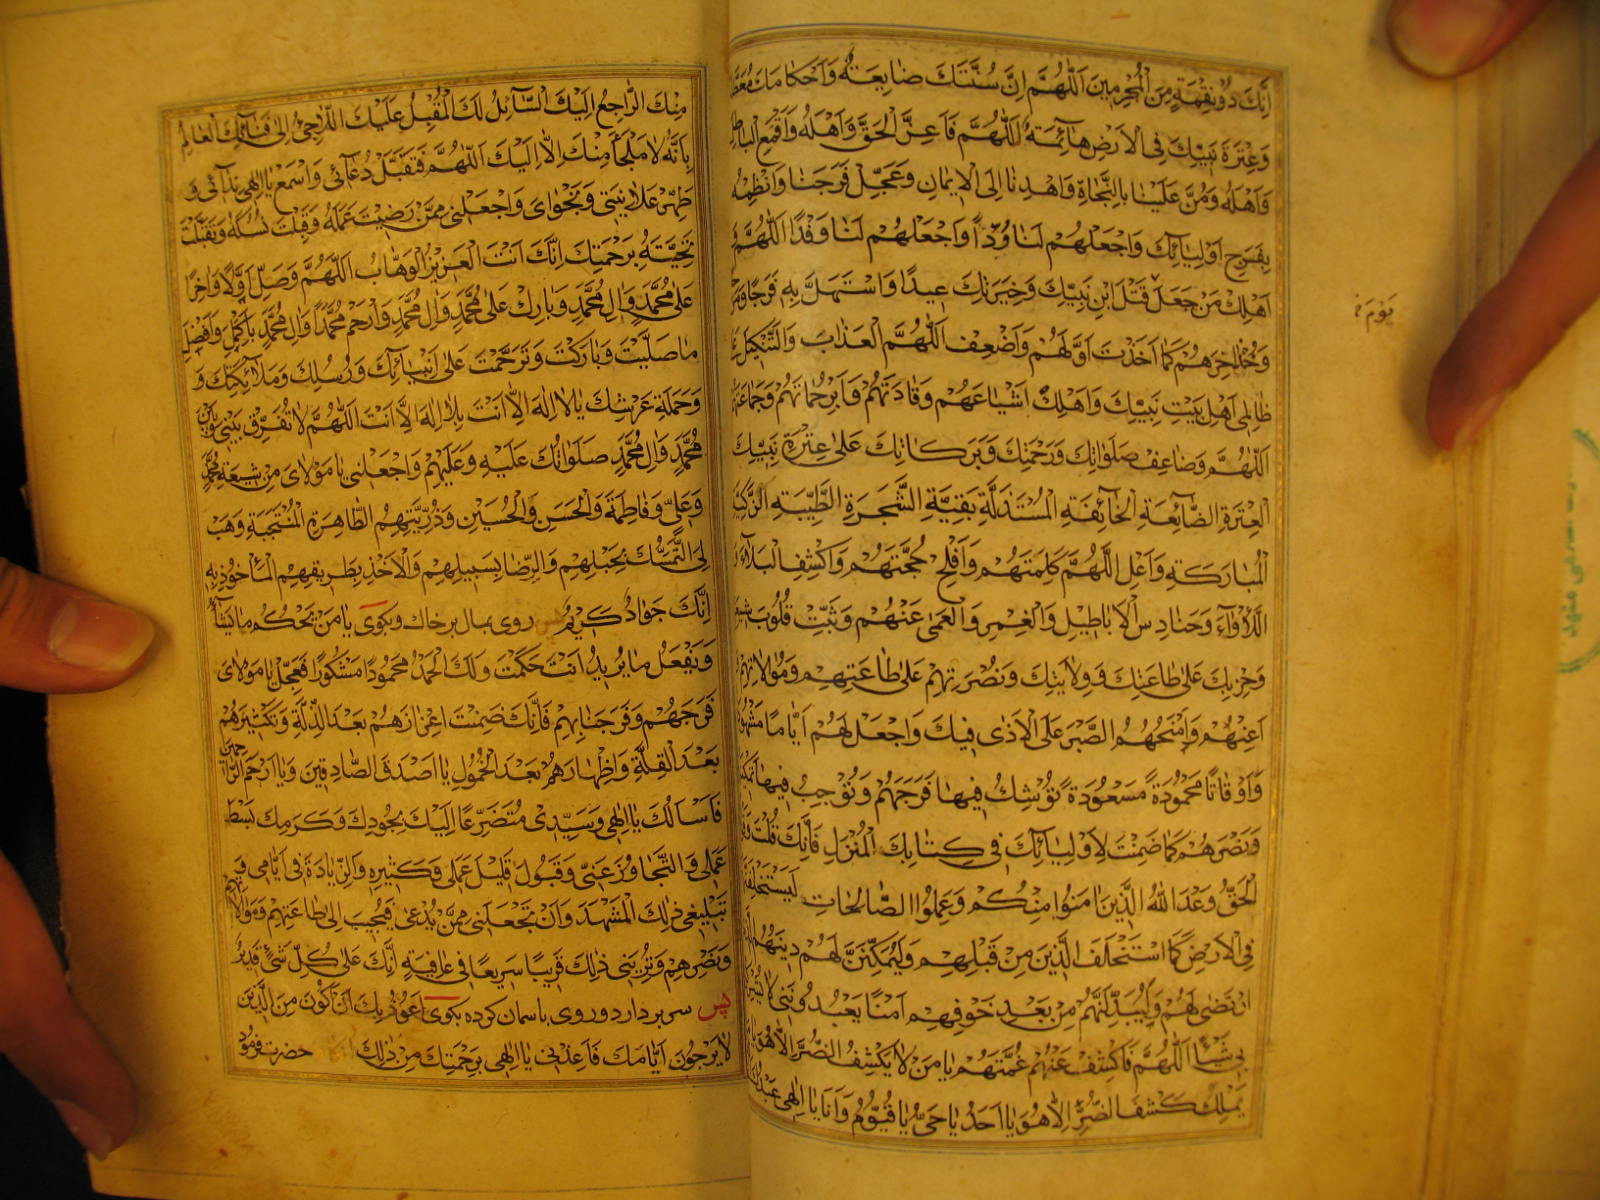 اِنَّكَ ذُو نِقْمَةٍ مِنَ الْمُجْرِمينَ اَللّٰهُمَّ اِنَّ سُنَّتَكَ ضٰايِعَةٌ وَاَحْكامَكَ مُعَطَّ
وَعِتْرَةَ نَبِيِّكَ فِى الْاَرْضِ هٰائِمَةٌ اَللّٰهُمَّ فَاَعِنَّ الْحَقَّ وَاَهْلَهُ وَاقْمَعِ الْباطِلَ
وَاَهْلَهُ وَمُنَّ عَلَيْنٰا بِالنَّجاةِ وَاهْدِنا اِلَى الْايمٰانِ وَعَجِّلْ فَرَجَنٰا وَانْظِمْهُ
بِفَرَجِ اَوْلِيٰائِكَ وَاجْعَلْهُمْ لَنا وُدّاً وَاجْعَلْهُمْ لَنا وَفْدًا اَللّٰهُمَّ
اَهْلِكْ مَنْ جَعَلَ قَتْلَ ابْنِ نَبِيِّكَ وَخِيَرَتِكَ عيدًا وَاسْتَهَلَّ بِهِ فَرَجًا
وَخُذْ اخِرَهُمْ كَمٰا اَخَذْتَ اَوَّلَهُمْ وَاَضْعِفِ اَللّٰهُمَّ الْعَذٰابَ وَالتَّنْكيلَ
ظٰالِمى اَهْلِ بَيْتِ نَبِيِّكَ وَاَهْلِكْ اَشْيٰاعَهُمْ وَقٰادَتَهُمْ وَاَبِرْ حُمٰاتَهُمْ وَجَمٰاعَتَهُمْ
اَللّٰهُمَّ وَضٰاعِفْ صَلَوٰاتِكَ وَرَحْمَتِكَ وَبَرَكٰاتِكَ عَلىٰ عِتْرَةِ نَبِيِّكَ
الْعِتْرَةِ الضّٰائِعَةِ الْخٰائِفَةِ الْمُسْتَذَلَّةِ بَقِيَّةِ الشَّجَرَةِ الطَّيِّبَةِ الزّٰكِيَةِ
الْمُبٰارَكَةِ وَاَعْلِ اللّٰهُمَّ كَلِمَتَهُمْ وَاَفْلِحْ حُجَّتَهُمْ وَاكْشِفِ الْبَلاءَ وَ
اللَّأْوٰاءَ وَحَنٰادِسَ الْاَباطيلِ وَالْغِمْرِ وَالْعَمىٰ عَنْهُمْ وَثَبِّتْ قُلُوبَ شيعَ
وَحِزْبِكَ عَلىٰ طٰاعَتِكَ وَوِلٰايَتِكَ وَنُصْرَتِهِمْ عَلىٰ طٰاعَتِهِمْ وَمُوٰالٰاتِهِمْ
اَعِنْهُمْ وَامْنَحْهُمُ الصَّبْرَ عَلَى الْاَذىٰ فيكَ وَاجْعَلْ لَهُمْ اَيّٰامًا مَشْهُودَ
وَاَوْقٰاتًا مَحْمُودَةً مَسْعُودَةً تُوْشِكُ فيهٰا فَرَجَهُمْ وَتُوْجِبُ فيهٰا
وَنَصْرَهُمْ كَمٰا ضَمِنْتَ لِاَوْلِيٰائِكَ فى كِتٰابِكَ الْمُنْزَلِ فَاِنَّكَ قُلْتَ
الْحَقُّ وَعَدَ اللّٰهُ الَّذينَ اٰمَنُوا مِنْكُمْ وَعَمِلُوا الصّٰالِحٰاتِ لَيَسْتَخْلِفَنَّ
فِى الْاَرْضِ كَمَا اسْتَخْلَفَ الَّذينَ مِنْ قَبْلِهِمْ وَلَيُمَكِّنَنَّ لَهُمْ دينَهُمُ
ارْتَضىٰ لَهُمْ وَلَيُبَدِّلَنَّهُمْ مِنْ بَعْدِ خَوْفِهِمْ اَمْنًا يَعْبُدُونَنى لا
بى شَيْئًا اَللّٰهُمَّ فَاكْشِفْ عَنْهُمْ غُمَّتَهُمْ يٰا مَنْ لٰا يَكْشِفُ الضُّرَّ اِلّٰا هُوَ
يَمْلِكُ كَشْفَ الضُّرِّ اِلّٰا هُوَ يٰا اَحَدُ يٰا حَىُّ يٰا قَيُّومُ وَاَنَا يٰا اِلٰهى عَبْدُكَ
مِنْكَ الرّٰاجِعُ اِلَيْكَ السّٰائِلُ لَكَ الْمُقْبِلُ عَلَيْكَ اللّٰاجِئُ اِلىٰ فِنٰائِكَ الْعٰالِمُ
بِاَنَّهُ لٰا مَلْجَأَ مِنْكَ اِلّٰا اِلَيْكَ اَللّٰهُمَّ فَتَقَبَّلْ دُعٰائى وَاسْمَعْ يٰا اِلٰهى نِدٰائى وَ
طَهِّرْ عَلٰانِيَتى وَنَجْوٰاىَ وَاجْعَلْنى مِمَّنْ رَضيتَ عَمَلَهُ وَقَبِلْتَ نُسُكَهُ وَتَقَبَّلْتَ
نَجِيَّتَهُ بِرَحْمَتِكَ اِنَّكَ اَنْتَ الْعَزيزُ الْوَهّٰابُ اَللّٰهُمَّ وَصَلِّ اَوَّلًا وَاٰخِرًا
عَلىٰ مُحَمَّدٍ وَاٰلِ مُحَمَّدٍ وَبٰارِكْ عَلىٰ مُحَمَّدٍ وَاٰلِ مُحَمَّدٍ وَارْحَمْ مُحَمَّدًا وَاٰلَ مُحَمَّدٍ بِاَكْمَلِ وَاَفْضَلِ
مٰا صَلَّيْتَ وَبٰارَكْتَ وَتَرَحَّمْتَ عَلىٰ اَنْبِيٰائِكَ وَرُسُلِكَ وَمَلٰائِكَتِكَ وَ
وَحَمَلَةِ عَرْشِكَ يٰا لٰا اِلٰهَ اِلّٰا اَنْتَ بِلٰا اِلٰهَ اِلّٰا اَنْتَ اَللّٰهُمَّ لٰا تُفَرِّقْ بَيْنى وَبَيْنَ
مُحَمَّدٍ وَاٰلِ مُحَمَّدٍ صَلَوٰاتُكَ عَلَيْهِ وَعَلَيْهِمْ وَاجْعَلْنى يٰا مَوْلٰاىَ مِنْ شيعَةِ مُحَمَّدٍ
وَعَلىٍّ وَفٰاطِمَةَ وَالْحَسَنِ وَالْحُسَيْنِ وَذُرِّيَّتِهِمُ الطّٰاهِرَةِ الْمُنْتَجَبَةِ وَهَبْ
لِىَ التَّمَسُّكَ بِحَبْلِهِمْ وَالرِّضٰا بِسَبيلِهِمْ وَالْاَخْذَ بِطَريقِهِمُ الْمَأْخُوذِ بِهِ
اِنَّكَ جَوٰادٌ كَريمٌ پس روى بمال برخاك وبكوى يٰا مَنْ يَحْكُمُ مٰا يَشٰاءُ
وَيَفْعَلُ مٰا يُريدُ اَنْتَ حَكَمْتَ وَلَكَ الْحَمْدُ مَحْمُودًا مَشْكُورًا فَعَجِّلْ يٰا مَوْلٰاىَ
فَرَجَهُمْ وَفَرَجَنٰا بِهِمْ فَاِنَّكَ ضَمِنْتَ اِعْزٰازَهُمْ بَعْدَ الذِّلَّةِ وَتَكْثيرَهُمْ
بَعْدَ الْقِلَّةِ وَاِظْهٰارَهُمْ بَعْدَ الْخُمُولِ يٰا اَصْدَقَ الصّٰادِقينَ وَيٰا اَرْحَمَ الرّٰاحِمينَ
فَاَسْأَلُكَ يٰا اِلٰهى وَسَيِّدى مُتَضَرِّعًا اِلَيْكَ بِجُودِكَ وَكَرَمِكَ بَسْطَ
عَمَلى وَالتَّجٰاوُزَ عَنّى وَقَبُولَ قَليلِ عَمَلى وَكَثيرِهِ وَالزِّيٰادَةَ فى اَيّٰامى
تَبْليغى ذٰلِكَ الْمَشْهَدَ وَاَنْ تَجْعَلَنى مِمَّنْ يُدْعىٰ فَيُجيبُ اِلىٰ طٰاعَتِهِمْ وَمُوٰالٰاتِهِمْ
وَنَصْرِهِمْ وَتُرِيَنى ذٰلِكَ قَريبًا سَريعًا فى عٰافِيَةٍ اِنَّكَ عَلىٰ كُلِّ شَىْءٍ قَديرٌ
پس سر بردار و روى باسمان كرده بكوى اَعُوذُ بِكَ اَنْ اَكُونَ مِنَ الَّذينَ
لٰا يَرْجُونَ اَيّٰامَكَ فَاَعِذْنى يٰا اِلٰهى بِرَحْمَتِكَ مِنْ ذٰلِكَ حضرت فرمود